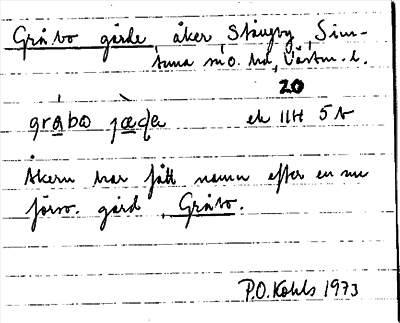 Gråbo gärde, åker Stångby, Sim-
tuna sn o. hd, Västm. l.
20
gråbo jæḍa ek IIH 5 b
Åkern har fått namn efter en nu
försv. gård, Gråbo.
P.O. Kohls 1973